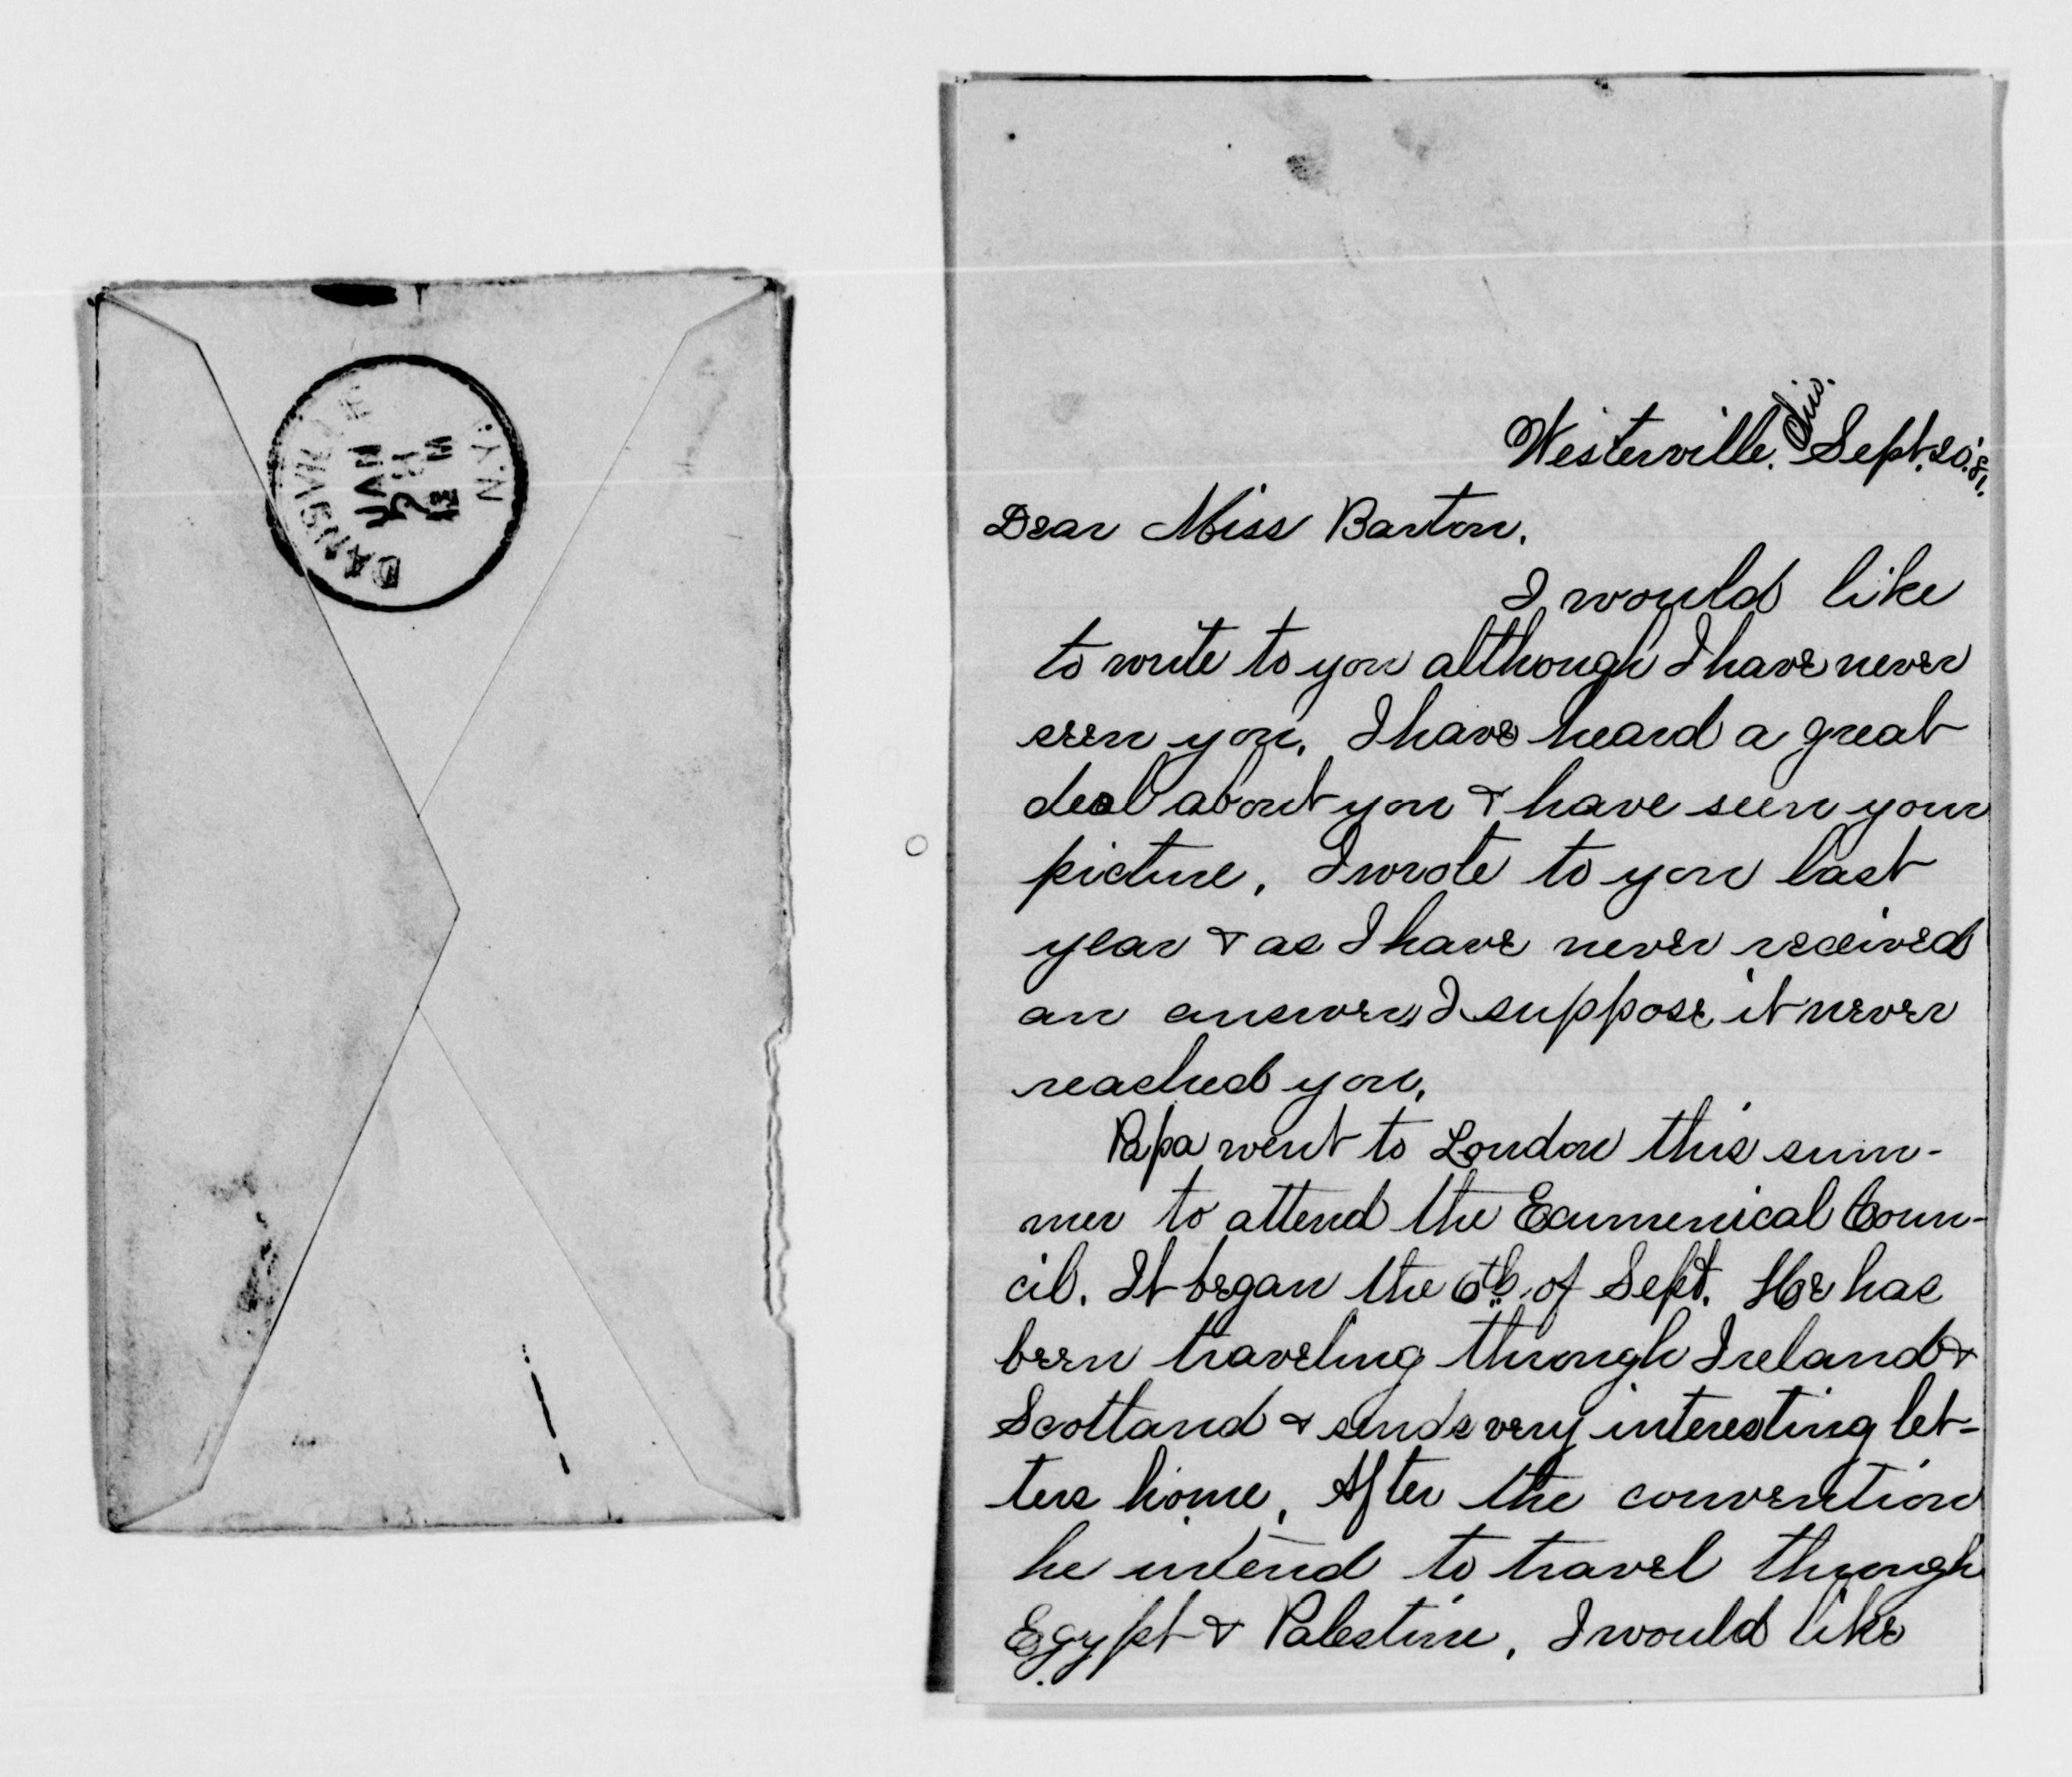 DANSVILLE
N.Y.
JAN
12 M
Westerville. Ohio. Sept. 20. '81.
Dear Miss Barton,
I would like
to write to you although I have never
seen you. I have heard a great
deal about you & have seen your
picture. I wrote to you last
year & as I have never received
an answer, I suppose it never
reached you.
Papa went to London this sum-
mer to attend the Ecumenical Coun-
cil. It began the 6th of Sept. He has
been traveling through Ireland &
Scotland & sends very interesting let-
ters home. After the convention
he intend to travel through
Egypt & Palestine. I would like